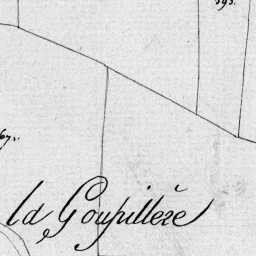 593.
67.
la Goupillère